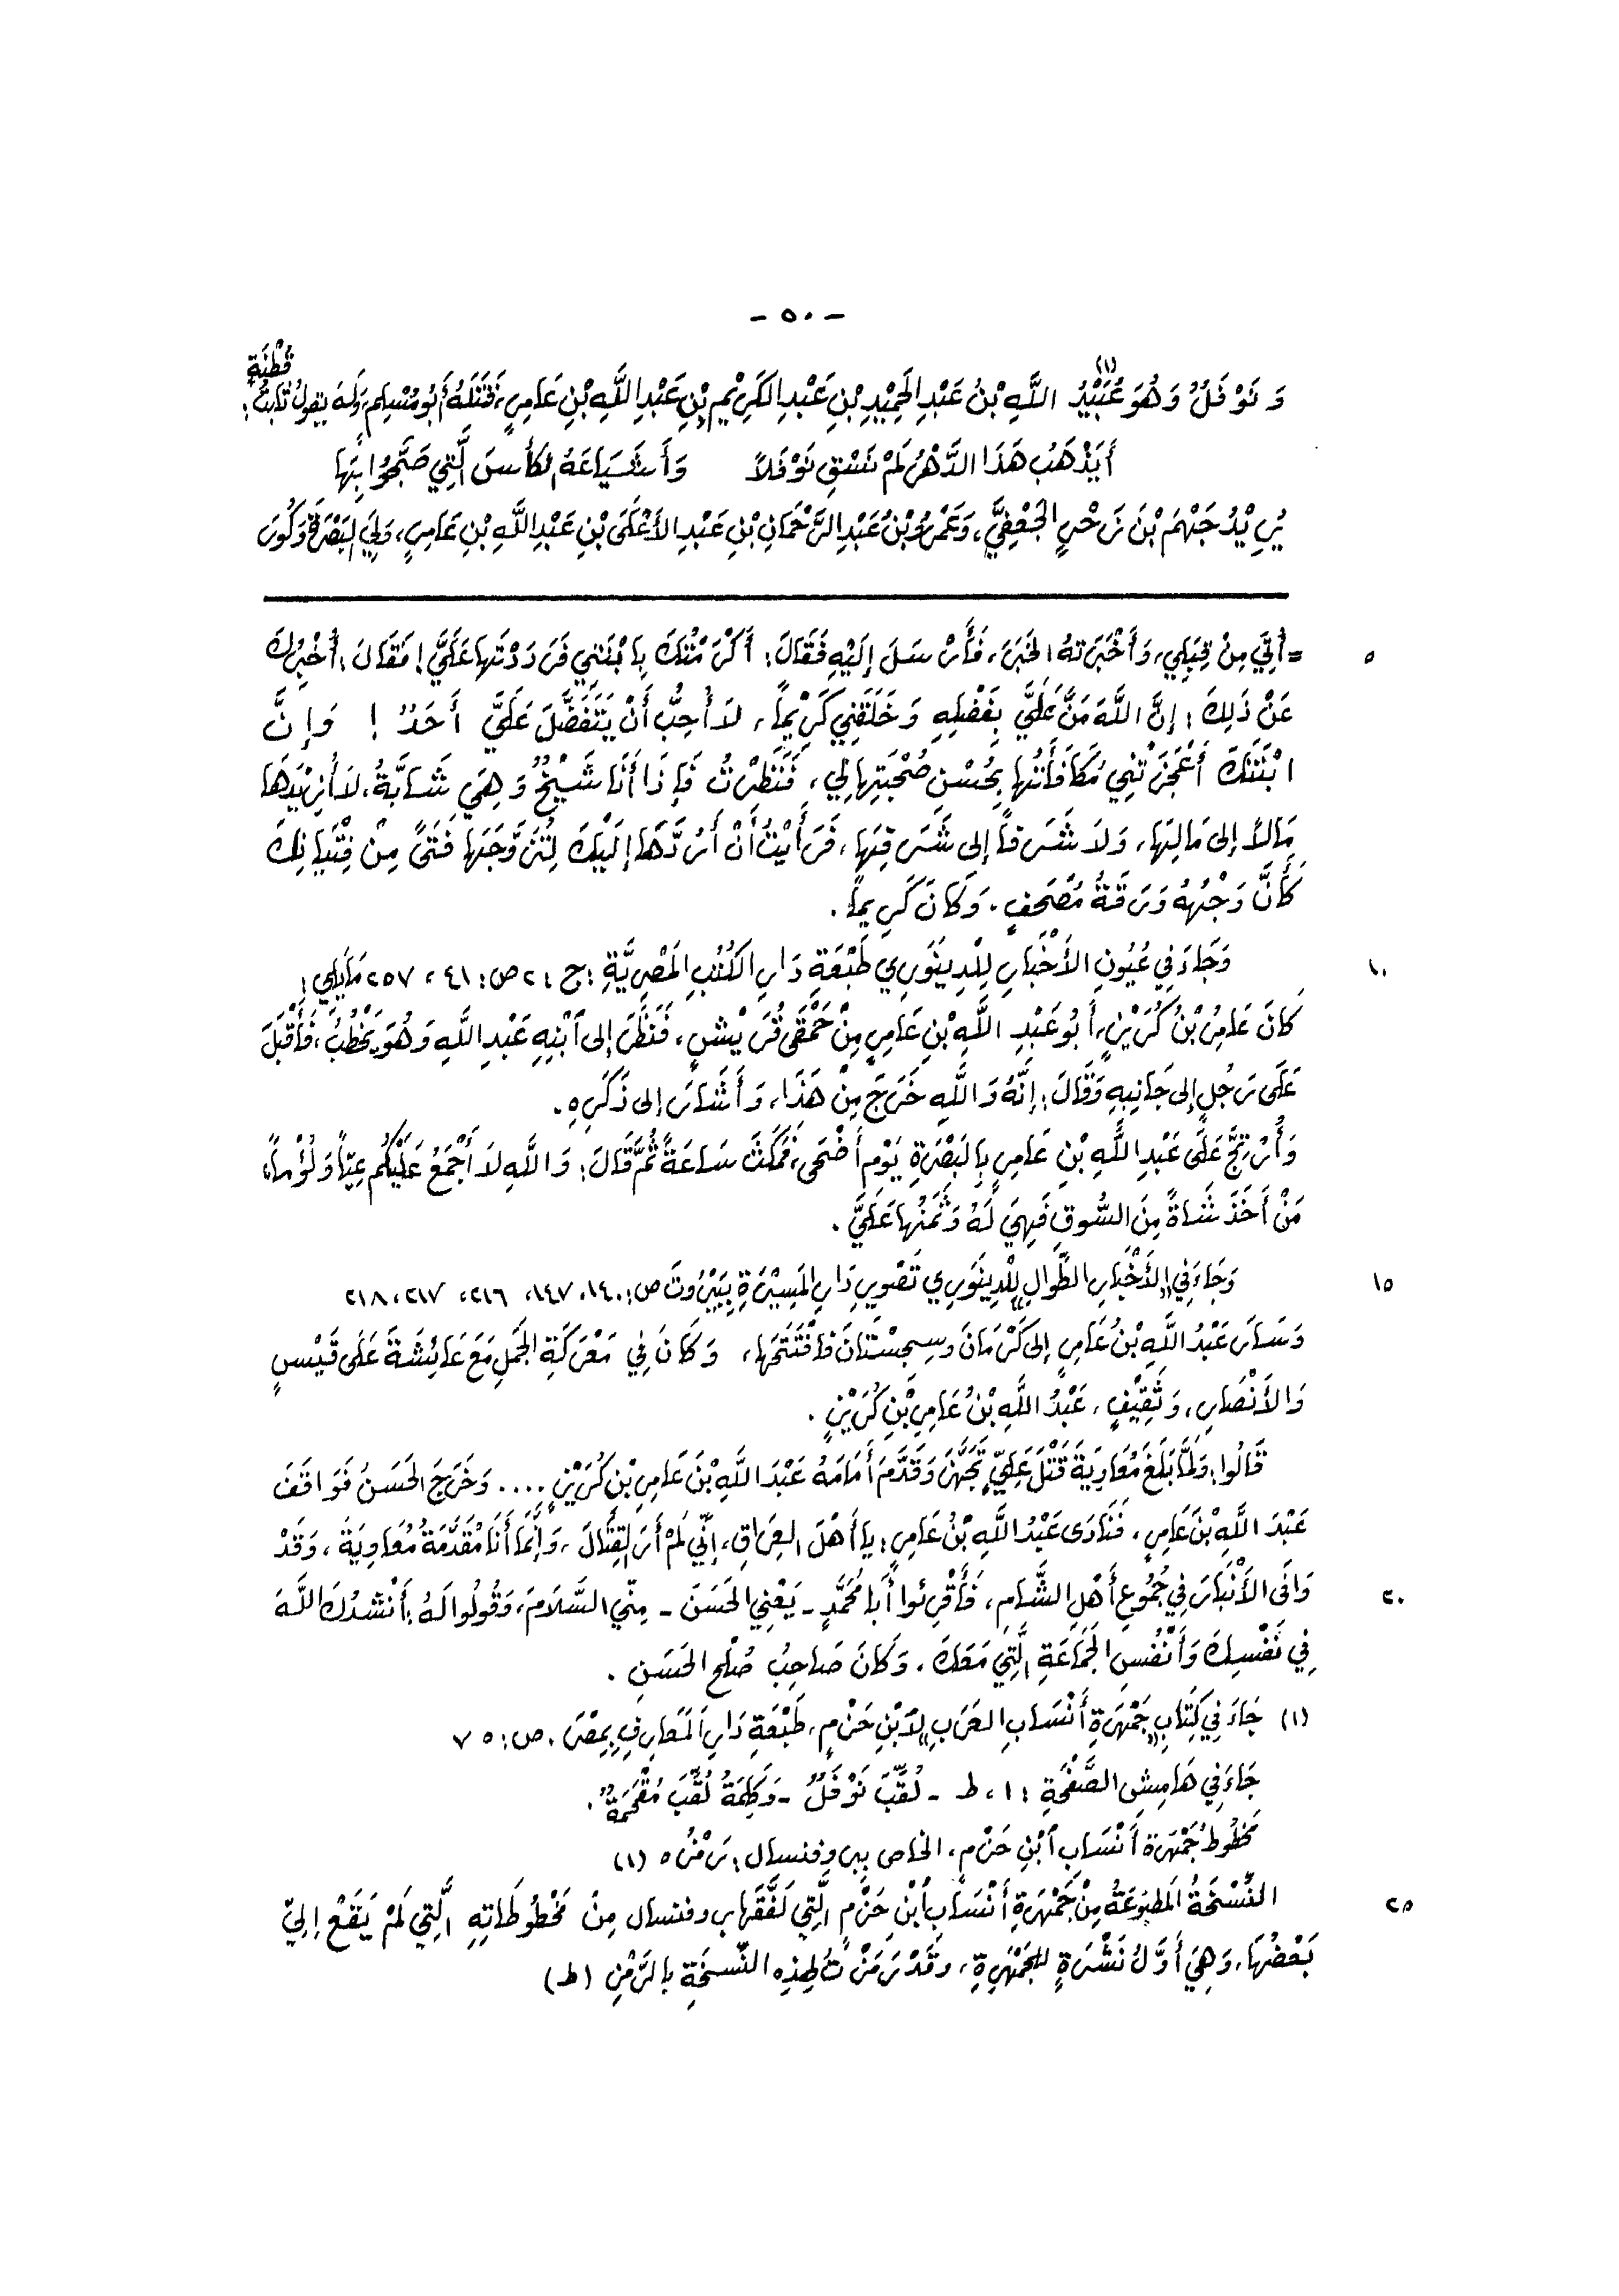 - ٥٠ -
وَنَوْفَلٌ وَهُوَ عُبَيْدُ (١) اللَّهِ بْنُ عَبْدِ الحَمِيْدِ بْنِ عَبْدِ الكَرِيْمِ بْنِ عَبْدِ اللَّهِ بْنِ عَامِرٍ، قَتَلَهُ أَبُو مُسْلِمٍ، وَلَهُ يَقُولُ ثَابِتُ قُطْنَةَ:
أَيَذْهَبُ هَذَا الدَّهْرُ لَمْ نَسْقِ نَوْفَلاً وَأَشْيَاعَهُ الكَأْسَ الَّتِي صَبَّحُوا بِهَا
يُرِيْدُ جَهْمَ بْنَ زَحْرٍ الجُعْفِيَّ، وَعَمْرُو بْنُ عَبْدِ الرَّحْمَانِ بْنِ عَبْدِ الأَعْلَى بْنِ عَبْدِ اللَّهِ بْنِ عَامِرٍ، وَلِيَ البَصْرَةَ وَكُوَرَ
٥ = أُتِيَ مِنْ قِبَلِي، وَأَخْبَرَتهُ الخَبَرَ، فَأَرْسَلَ إِلَيْهِ فَقَالَ: أَكْرَمْتُكَ بِابْنَتِي فَرَدَدْتَها عَلَيَّ! فَقَالَ: أُخْبِرُكَ
عَنْ ذَلِكَ: إِنَّ اللَّهَ مَنَّ عَلَيَّ بِفَضْلِهِ وَخَلَقَنِي كَرِيْماً، لاَ أُحِبُّ أَنْ يَتَفَضَّلَ عَلَيَّ أَحَدٌ! وَإِنَّ
ابْنَتَكَ أَعْجَزَتْنِي مُكَافَأَتُها بِحُسْنِ صُحْبَتِها لِي، فَنَظَرْتُ فَإِذَا أَنَا شَيْخٌ وَهِيَ شَابَّةٌ، لاَ أَزِيْدَهَا
مَالاً إِلى مَالِهَا، وَلاَ شَرَفاً إِلى شَرَفِهَا، فَرَأَيْتُ أَنْ أَرُدَّهَا إِلَيْكَ لِتُزَوِّجَها فَتَىً مِنْ فِتْيَانِكَ
كَأَنَّ وَجْهَهُ وَرَقَةُ مُصْحَفٍ. وَكَانَ كَرِيماً.
١٠ وَجَاءَ فِي عُيُونِ الأَخْبَارِ لِلْدِينَوَرِي طَبْعَةِ دَارِ الكُتُبِ المَصْرِيَّةِ: ج: ٢ ص: ٤١، ٢٥٧ مَايَلِي:
كَانَ عَامِرُ بْنُ كُرَيْزٍ، أَبُو عَبْدِ اللَّهِ بْنِ عَامِرٍ مِنْ حَمْقَى قُرَيْشٍ، فَنَظَرَ إِلى ابْنِهِ عَبْدِ اللَّهِ وَهُوَ يَخْطُبُ، فَأَقْبَلَ
عَلَى رَجُلٍ إِلى جَانِبِهِ وَقَالَ: إِنَّهُ وَاللَّهِ خَرَجَ مِنْ هَذَا، وَأَشَارَ إِلى ذَكَرِهِ.
وَأُرْتِجَّ عَلَى عَبْدِ اللَّهِ بْنِ عَامِرٍ بِالبَصْرَةِ يَوْمَ أَضْحَى، فَمَكَثَ سَاعَةً ثُمَّ قَالَ: وَاللَّهِ لاَ أَجْمَعُ عَلَيْكُم عِيّاً وَلُؤْماً،
مَنْ أَخَذَ شَاةً مِنَ السُّوقِ فَهِيَ لَهُ وَثَمَنُها عَلَيَّ.
١٥ وَجَاءَ فِي «الأَخْبَارِ الطِّوَالِ» لِلْدِينَوَرِي تَصْوِيرِ دَارِ المَسِيْرَةِ بِبَيْرُوتَ ص: ١٤٠، ١٤٧، ٢١٦، ٢١٧، ٢١٨
وَسَارَ عَبْدُ اللَّهِ بْنُ عَامِرٍ إِلى كَرْمَانَ وسِجِسْتَانَ فَافْتَتَحَها، وَكَانَ فِي مَعْرَكَةِ الجَمَلِ مَعَ عَائِشَةَ عَلَى قَيْسٍ
وَالأَنْصَارِ، وَثَقِيْفٍ، عَبْدُ اللَّهِ بْنُ عَامِرِ بْنِ كُرَيْزٍ.
قَالُوا: وَلَمَّا بَلَغَ مُعَاوِيَةَ قَتْلَ عَلِيٍّ تَجَهَّزَ وَقَدَّمَ أَمَامَهُ عَبْدَ اللَّهِ بْنَ عَامِرِ بْنِ كُرَيْزٍ.... وَخَرَجَ الحَسَنُ فَوَاقَفَ
عَبْدَ اللَّهِ بْنَ عَامِرٍ، فَنَادَى عَبْدُ اللَّهِ بْنُ عَامِرٍ: يَا أَهْلَ العِرَاقِ، إِنِّي لَمْ أَرَ القِتَالَ، وَإِنَّمَا أَنَا مُقَدَّمَةُ مُعَاوِيَةَ، وَقَدْ
٢٠ وَافَى الأَنْبَارَ فِي جُمُوعِ أَهْلِ الشَّامِ، فَأَقْرِئُوا أَبَا مُحَمَّدٍ - يَعْنِي الحَسَنَ - مِنِّي السَّلاَمَ، وَقُولُوا لَهُ: أَنْشدُكَ اللَّهَ
فِي نَفْسِكَ وَأَنْفُسِ الجَمَاعَةِ الَّتِي مَعَكَ. وَكَانَ صَاحِبُ صُلْحِ الحَسَنِ.
(١) جَاءَ فِي كِتَابِ «جَمْهَرَةِ أَنْسَابِ العَرَبِ» لاَبْنِ حَزْمٍ، طَبْعَةِ دَارِ المَعَارِفِ بِمِصْرَ. ص: ٧٥
جَاءَ فِي هَامِشِ الصَّفْحَةِ: ١، ط - لُقِّبَ نَوْفَلٌ - وَكَلِمَةُ لُقِّبَ مُقْحَمَةٌ.
مَخْطُوطُ جَمْهَرَة أَنْسَابِ ابْنِ حَزْمٍ، الخاص ببروفنسال: رَمْزُه (١)
٢٥ النُّسْخَةُ المَطبُوعَةُ مِنْ جَمْهَرَةِ أَنْسَابِ ابْنِ حَزْمٍ الَّتِي لَفَّقَها بروفنسال مِنْ مَخْطُوطَاتِهِ الَّتِي لَمْ يَقَعْ إِليّ
بَعْضُهَا، وَهِيَ أَوَّلُ نَشْرَةٍ لِلجَمْهَرِةِ، وقَدْ رَمَزْتُ لِهذِه النُّسخَةِ بالرَّمْزِ (ط)